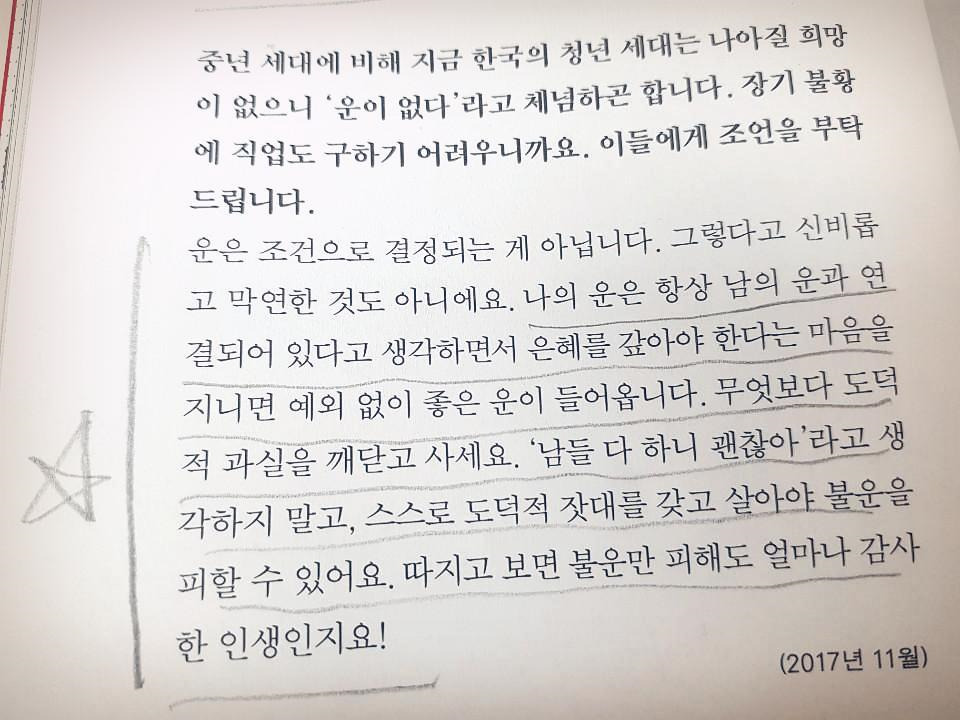 중년 세대에 비해 지금 한국의 청년 세대는 나아질 희망
이 없으니 ‘운이 없다’라고 체념하곤 합니다. 장기 불황
에 직업도 구하기 어려우니까요. 이들에게 조언을 부탁
드립니다.
운은 조건으로 결정되는 게 아닙니다. 그렇다고 신비롭
고 막연한 것도 아니에요. 나의 운은 항상 남의 운과 연
결되어 있다고 생각하면서 은혜를 갚아야 한다는 마음을
지니면 예외 없이 좋은 운이 들어옵니다. 무엇보다 도덕
적 과실을 깨닫고 사세요. ‘남들 다 하니 괜찮아’라고 생
각하지 말고, 스스로 도덕적 잣대를 갖고 살아야 불운을
피할 수 있어요. 따지고 보면 불운만 피해도 얼마나 감사
한 인생인지요!
(2017년 11월)